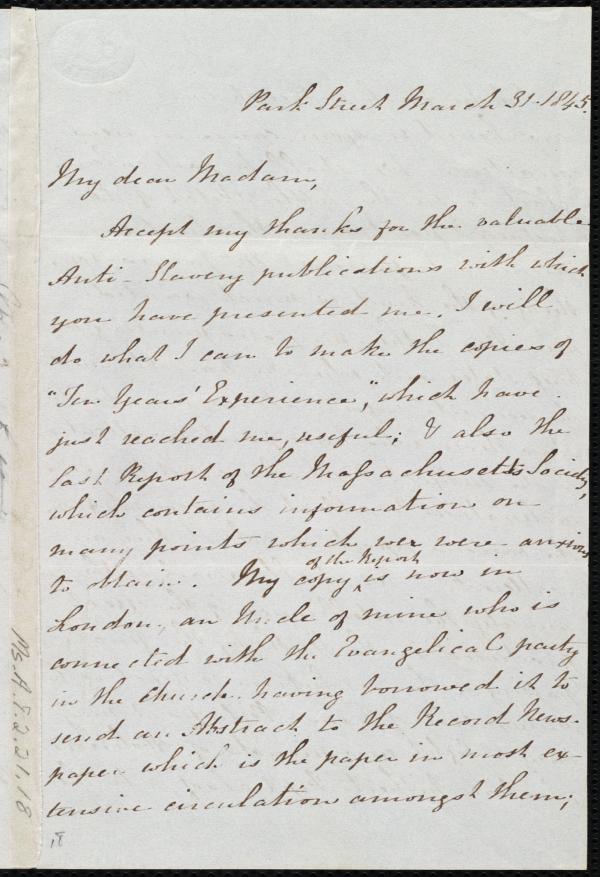 Park Street March 31. 1845.
My dear Madam,
Accept my thanks for the valuable
Anti-Slavery publications with which
you have presented me. I will
do what I can to make the copies of
"Ten Years' Experience," which have
just reached me, useful; & also the
last Report of the Massachusetts Society,
which contains information on
many points which wer were anxious
of the Report
to obtain. My copy ^ is now in
London, an Uncle of mine who is
connected with the Evangelical party
in the church having borrowed it to
send an Abstract to the Record News-
paper which is the paper in most ex-
tensive circulation amongst them;
Ms.A.9.2.21.18
18